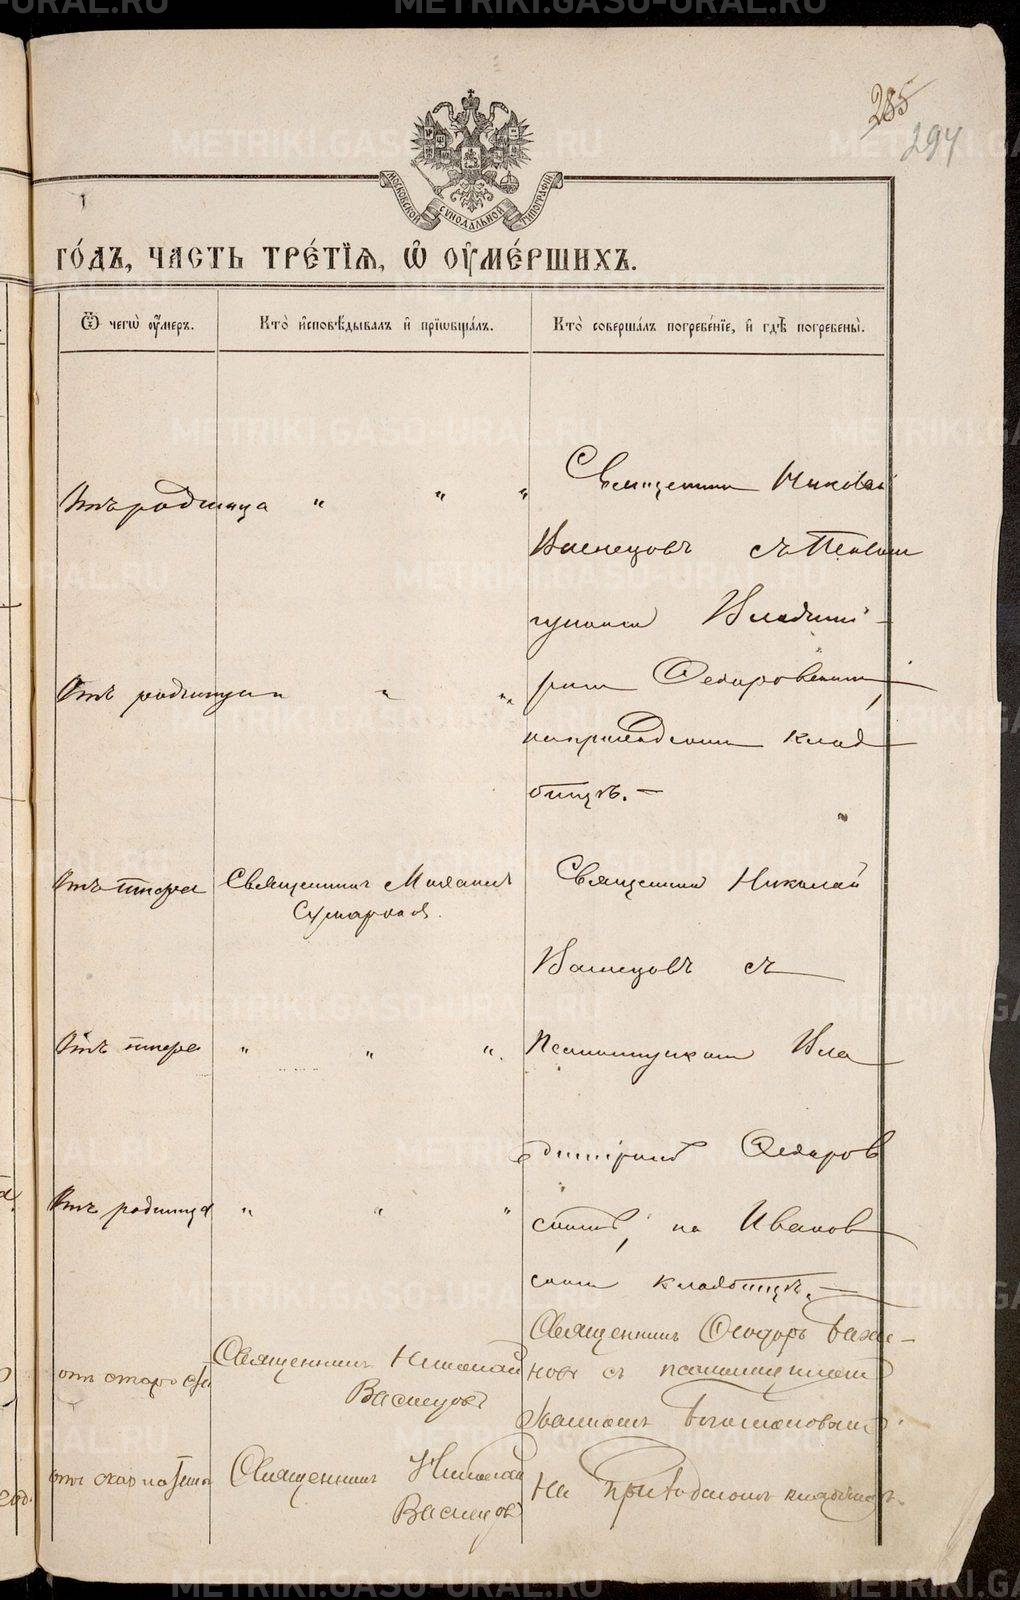 285
294
МОСКОВСКОЙ СѴНОДАЛЬНОЙ ТИПОГРАФІИ
ГО́ДЪ, ЧАСТЬ ТРЕ́ТІЯ, Ѡ ОУМЕ́РШИХЪ.
Ѿ чегѡ̀ оу́меръ.
Кто̀ и҆сповѣ́дывалъ и҆ прїѡбща́лъ.
Кто̀ соверша́лъ погребе́нїе, и҆ гдѣ̀ погребены̀.
Отъ родимца " " "
Священникъ Николай
Васнецовъ съ Псалом
щикомъ Владимі-
ромъ Федоровскимъ,
на приходскомъ клад
бищѣ.-
Отъ родимца " " "
Отъ тифа
Священникъ Михаилъ
Священникъ Николай
Васнецовъ съ
Псаломщикомъ Вла
диміромъ Федоров
скимъ, на Иванов
скомъ кладбищѣ.-
Отъ тифа " " "
Отъ родимца " " "
отъ старости
Священникъ Николай
Васнецовъ
Священникъ Ѳеодоръ
с псаломщикомъ
на приходскомъ кладбищѣ.
отъ
Священникъ Николай
Васнецовъ
METRIKI.GASO-URAL.RU